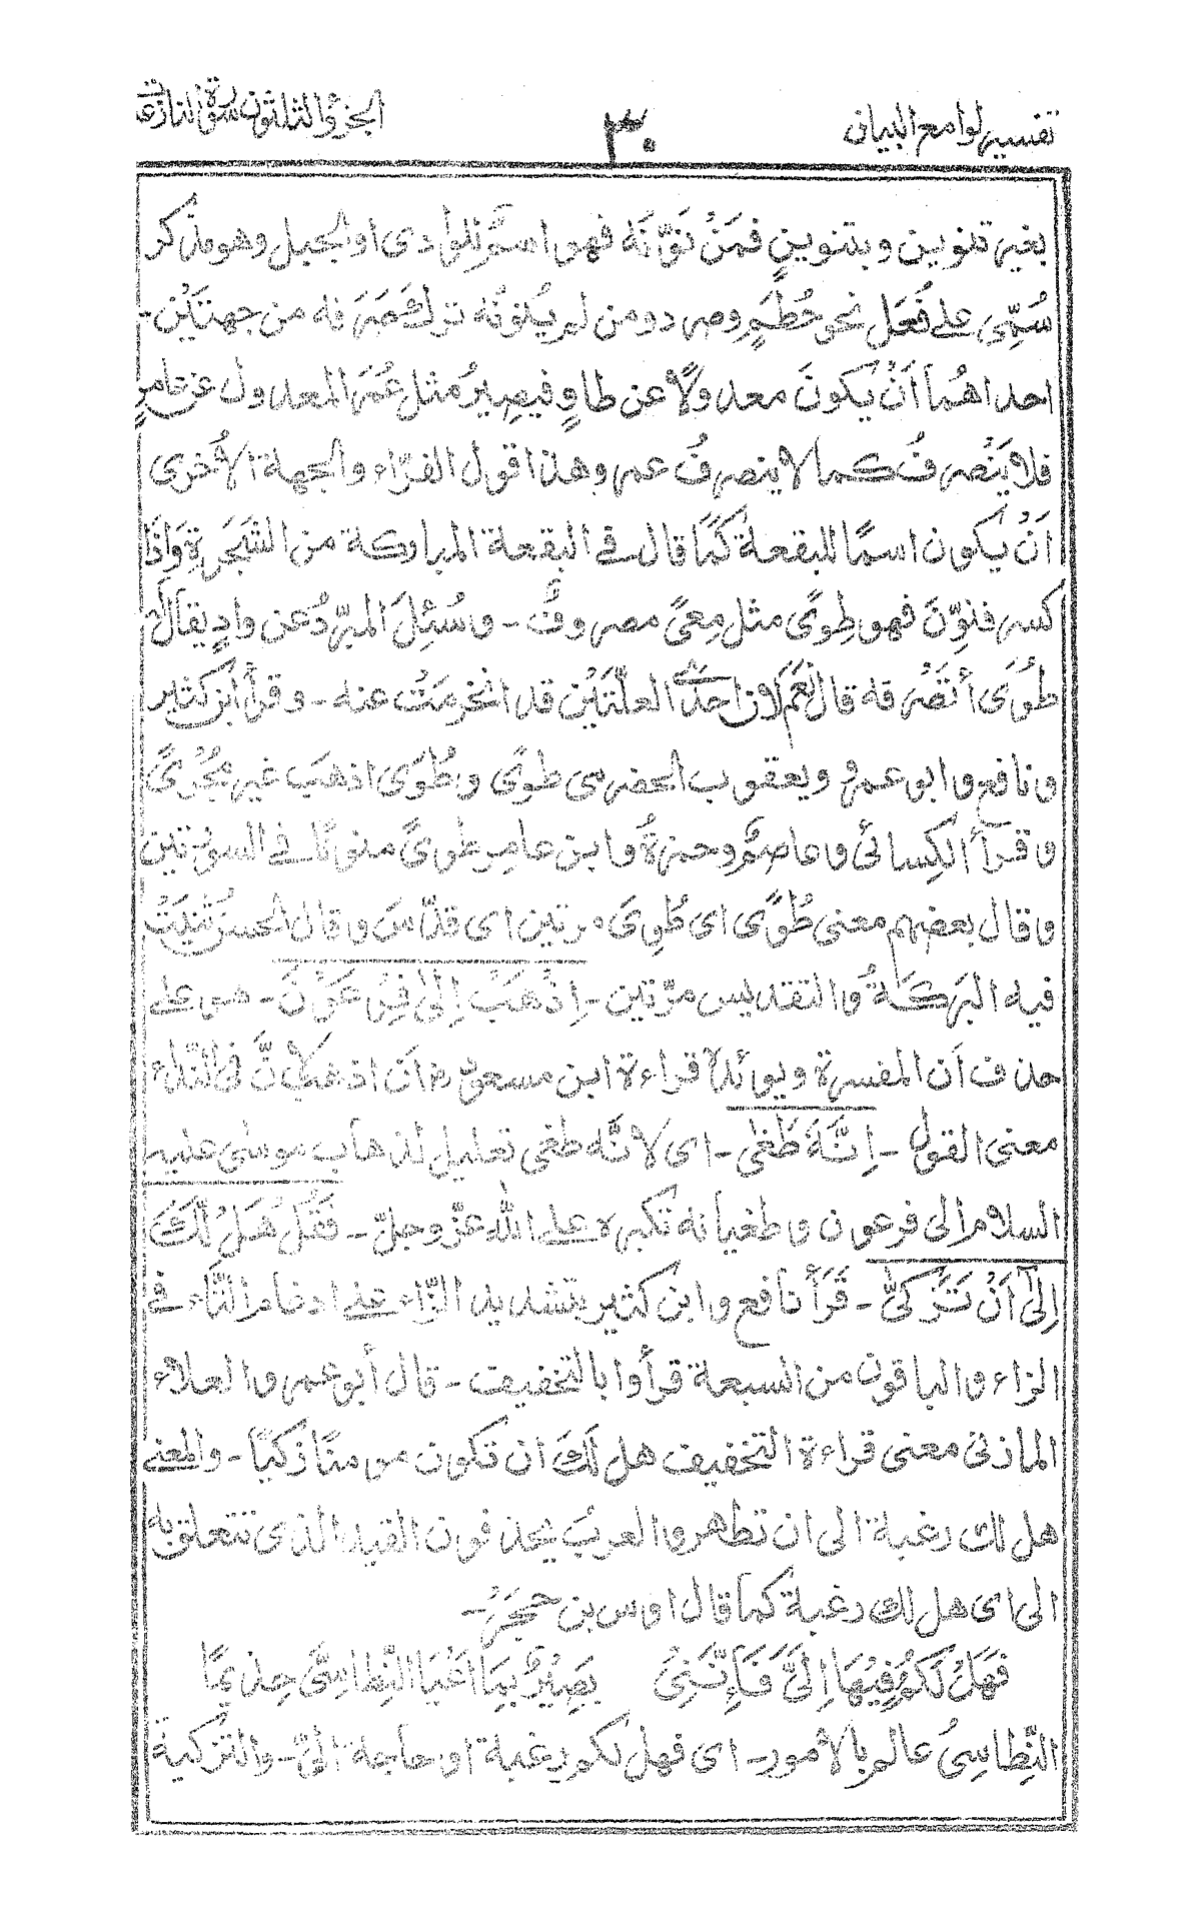 تفسير لوامع البيان ٣٠ الجزء الثلثون سورة النازعت
بغير تنوين وبتنوين فمَنْ نَوَّنَهُ فهو اسمٌ للوادى او الجبل وهو مذكر
سُمِّى على فُعَل نحو حُطَمٍ وصرد ومن لم يُنوِّنْه ترك صَرَفه من جهتَيْن-
احداهُما اَنْ يكونَ معدولًا عن طاوٍ فيصيرُ مثل عُمَرَ المعدول عن عامرٍ
فلا يَنْصرفُ كما لا ينصرفُ عمر وهذا قول الفرّاء والجهة الأُخرى
اَنْ يكون اسمًا للبقعة كَمَا قال فى البقعة المباركة من الشَّجَرةِ وَاِذَا
كسر فنوِّنَ فهو طِوًى مثل مِعًى مصروفٌ - وسُئِلَ المبرّدُ عن وادٍ يقال له
طُوًى أتَصْرفه قال نعَم لان احدى العلّتَيْن قد انخرمَتْ عنه - وقرأ ابن كثير
ونافع وابو عمرو ويعقوب الحضرمى طوى وطُوَى اذهبَ غير مُجْرًى
وقرأ الكسائى وعاصمٌ وحمزةُ وابن عامر طوًى منونًا فى السورتين
وقال بعضهم معنى طُوًى اى طُوِىَ مرتين اى قدّاسَ وقال الحسن ثنيَتْ
فيه البركةُ والتقديس مرّتين - اِذْهَبْ اِلىٰ فِرْعَوْنَ - هو على
حذف اَن المفسرة ويوائده قراءة ابن مسعود ان اذهب لانَّ فى النداء
معنى القول - اِنَّهٗ طَغٰى - اى لانَّه طغى تعليل لذهاب موسٰى عليه
السلام الى فرعون وطغيانه تكبره على الله عزّوجلّ - فَقُلْ هَلْ لَّكَ
اِلىٰٓ اَنْ تَزَكّٰى - قَرَأ نافع وابن كثير بتشديد الزّاء على ادغام التّاء فى
الزاء والباقون من السبعة قرأوا بالتخفيف - قال أبو عمرو العلاء
المازنى معنى قراءة التخفيف هل لكَ ان تكون مومنًا زكيًا - والمعنى
هل لك رغبة الى ان تطهر والعربُ يحذفون القيد الذى تتعلق به
الى اى هل لك رغبة كما قال اوس بن حجَرْ -
فَهَلْ لَكُمْ فِيْهَا اِلَىَّ فَاِنَّنِىْ بَصِيْرٌ بِمَا اَعْيَا النِّطَاسِىَّ حِذْيَمَا
النِّطاسِىُ عالم بالأمور - اى فهل لكم رغبة او حاجة الىّ - والتزكية